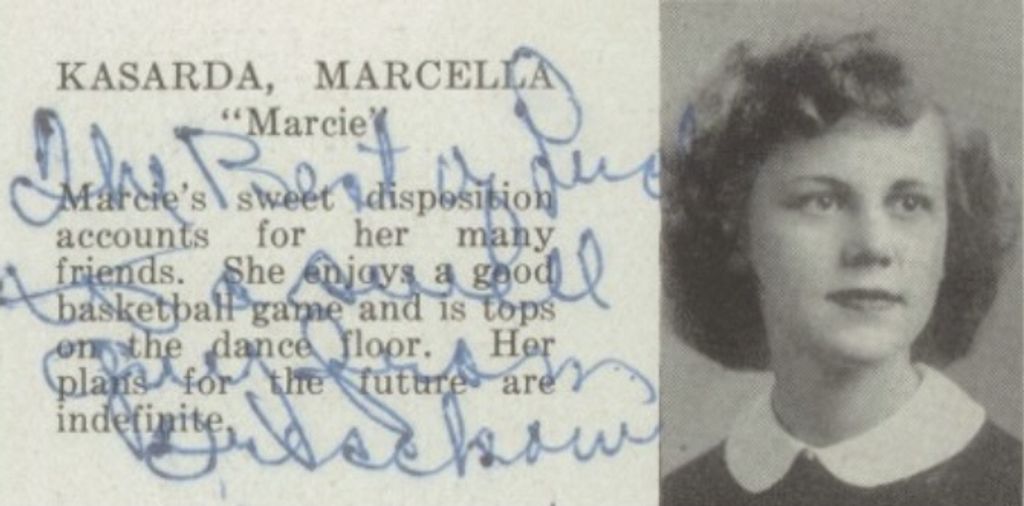 KASARDA, MARCELLA
"Marcie"
The Best of Luck
Marcie's sweet disposition
accounts for her many
friends. She enjoys a good
to a swell
basketball game and is tops
on the dance floor. Her
from
plans for the future are
indefinite.